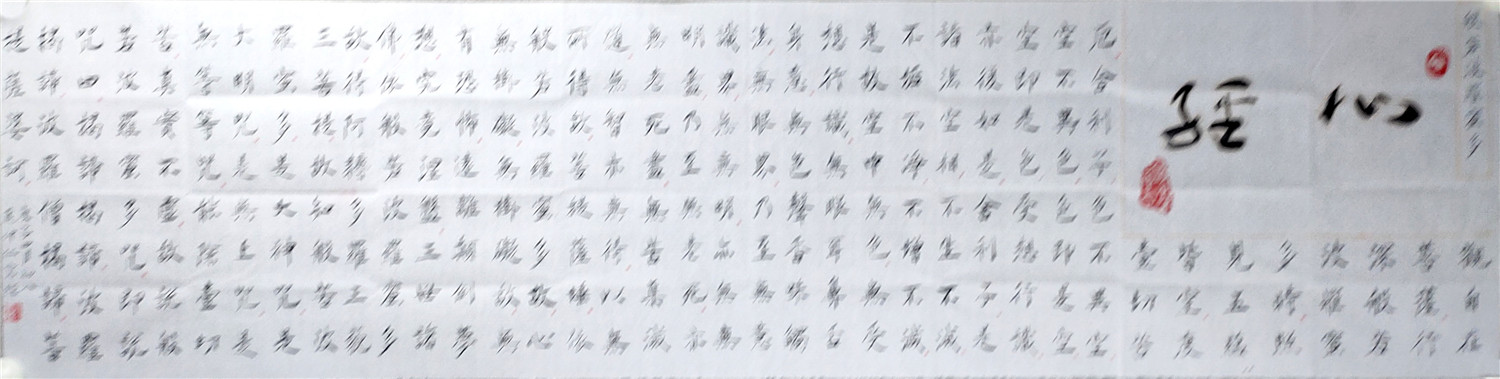 般若波羅蜜多
心經
觀自在
菩薩行
深般若
波羅蜜
多時照
見五蘊
皆空度
壹切苦
厄舍利子色不異空
空不異色色即是空
空即是色受想行識
亦復如是舍利子是
諸法空相不生不滅
不垢不淨不增不減
是故空中無色無受
想行識無眼耳鼻舌
身意無色聲香味觸
法無眼界乃至無意
識界無無明亦無無
明盡乃至無老死亦
無老死盡無苦集滅
道無智亦無得以無
所得故菩提薩埵依
般若波羅蜜多故心
無罣礙無罣礙故無
有恐怖遠離顛倒夢
想究竟涅槃三世諸
佛依般若波羅蜜多
故得阿耨多羅三藐
三菩提故知般若波
羅蜜多是大神咒是
大明咒是無上咒是
無等等咒能除壹切
苦真實不虛故說般
若波羅蜜多咒即說
咒曰揭諦揭諦波羅
揭諦波羅僧揭諦菩
提薩婆訶